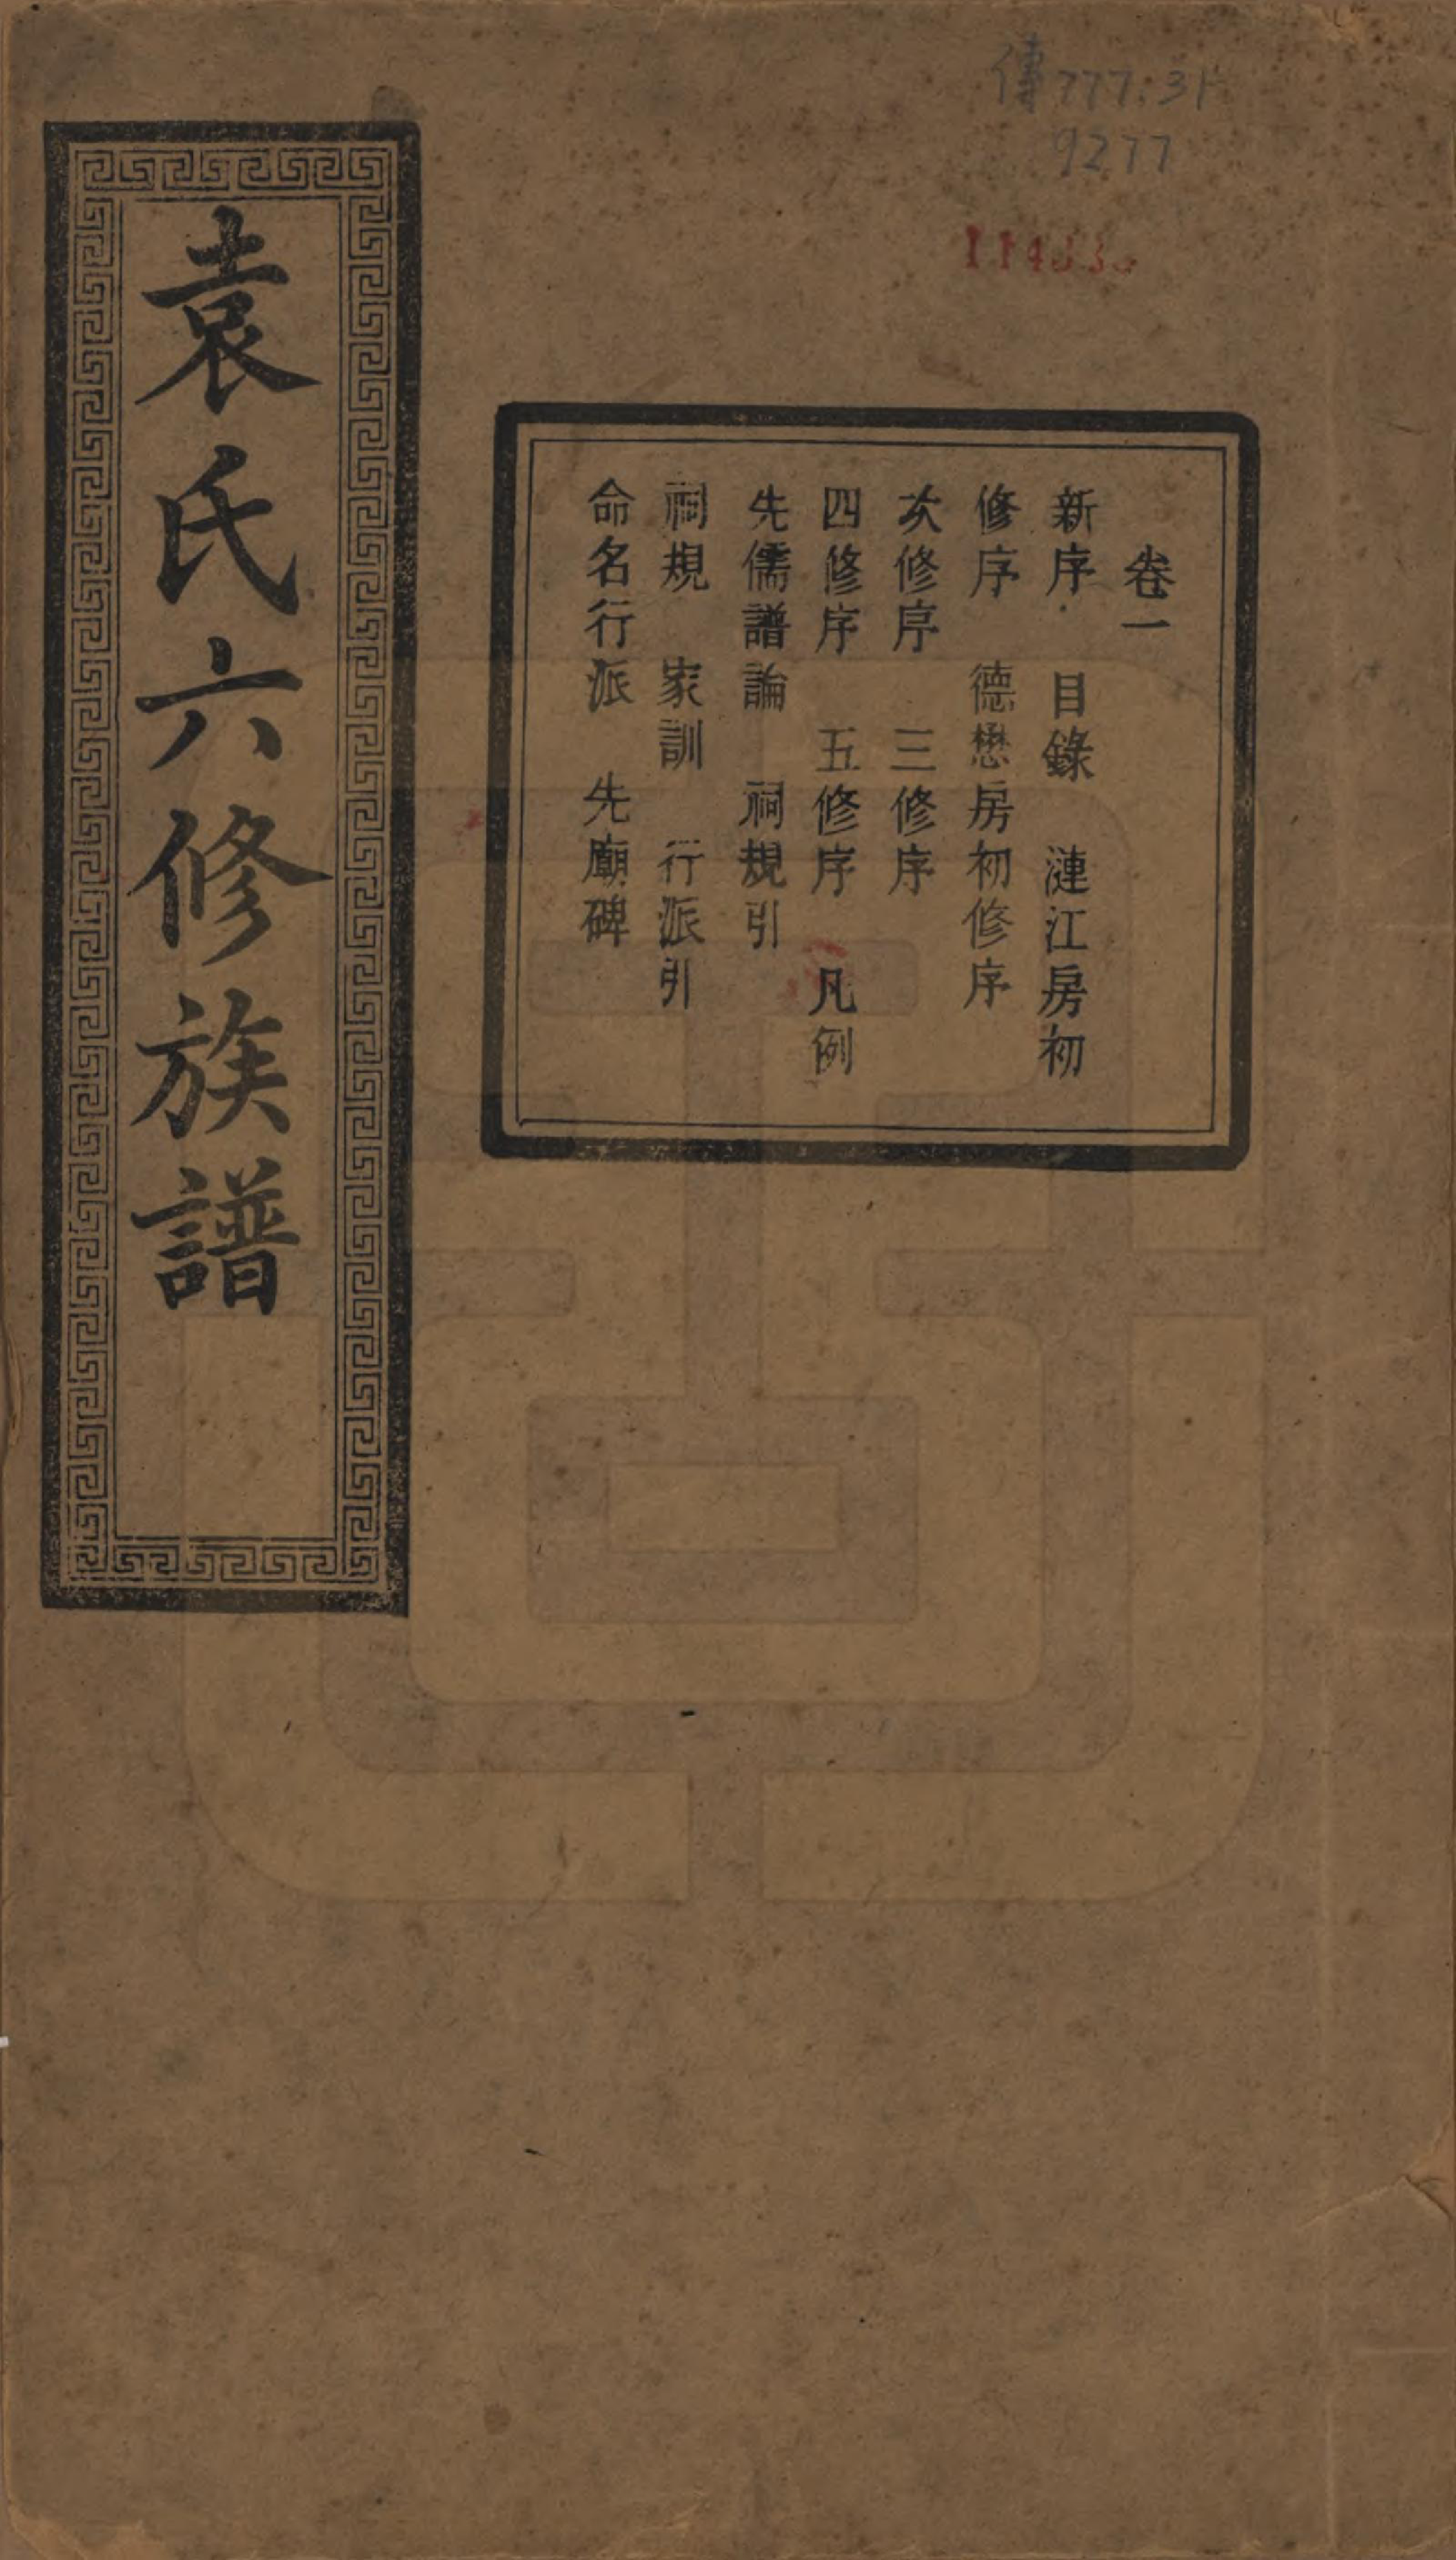 傳777.31
9277
袁氏六修族譜
卷一
新序 目錄 漣江房初
修序 德懋房初修序
次修序 三修序
四修序 五修序 凡例
先儒譜論 祠規引
祠規 家訓 行派引
命名行派 先廟碑